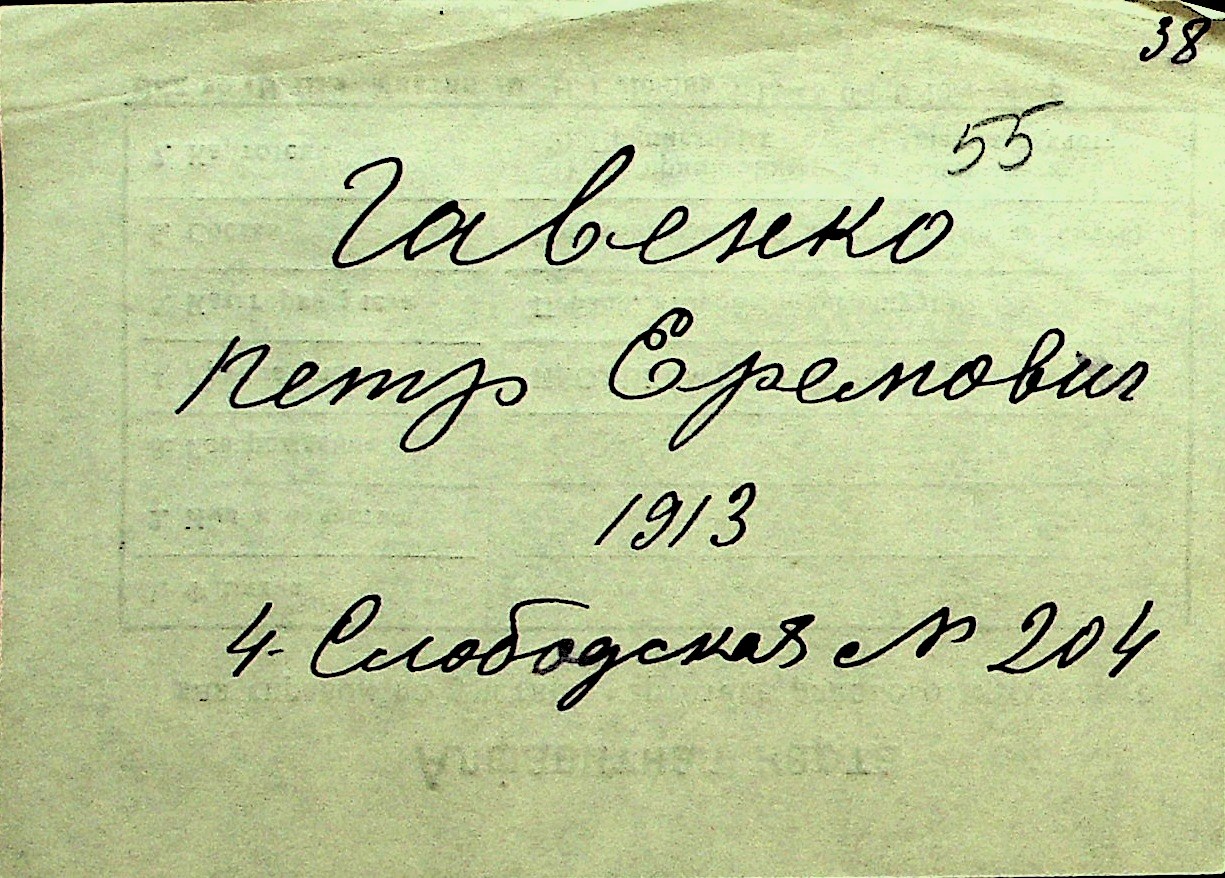 38
55
Гавенко
Петр Еремович
1913
4-Слободская № 204